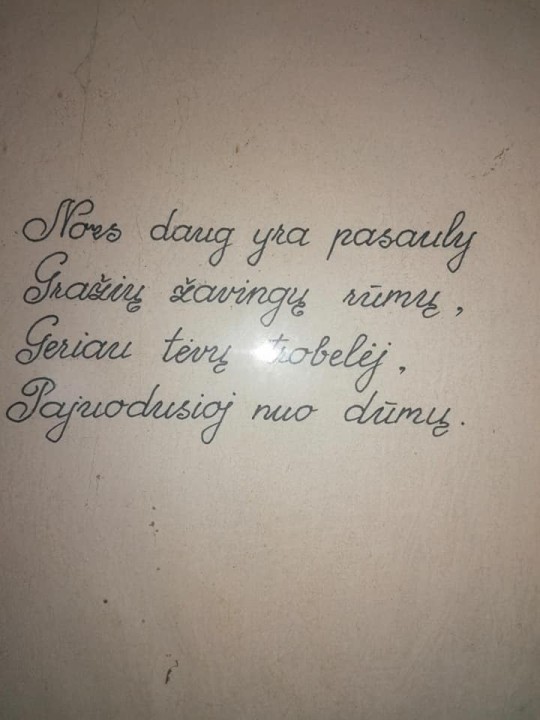 Nors daug yra pasauly
Gražių žavingų rūmų,
Geriau tėvų trobelėj,
Pajuodusioj nuo dūmų.